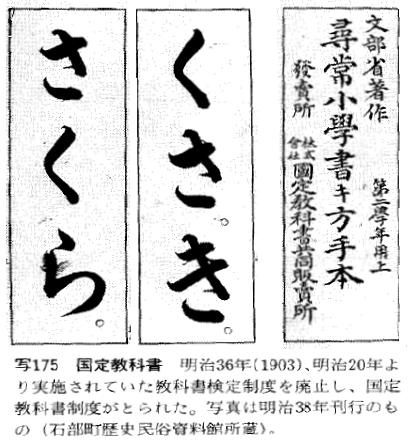 文部省著作
尋常小學書キ方手本
第二學年用上
發賣所
株式會社
國定教科書共同販賣所
くさき。
さくら。
写175 国定教科書 明治36年(1903)、明治20年よ
り実施されていた教科書検定制度を廃止し、国定
教科書制度がとられた。写真は明治38年刊行のも
の(石部町歴史民俗資料館所蔵)。